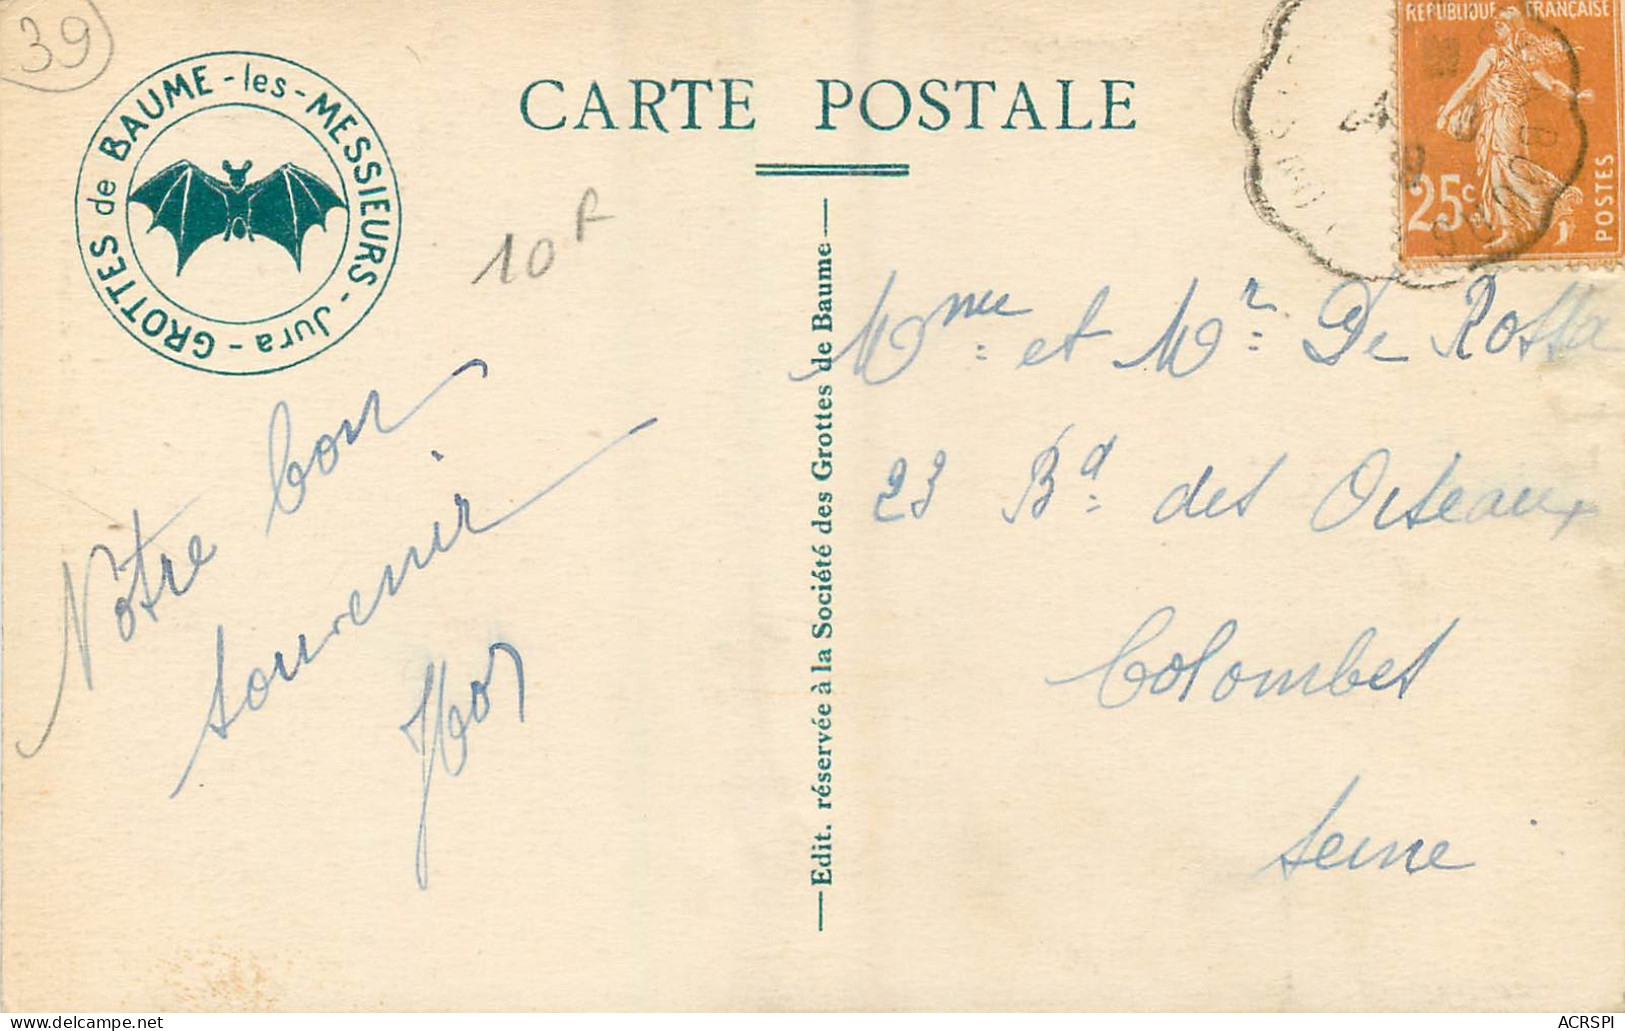 39
GROTTES de BAUME-les-MESSIEURS - Jura -
CARTE POSTALE
REPUBLIQUE FRANÇAISE
25c
POSTES
10 F
Notre bon
souvenir
Edit. réservée à la Société des Grottes de Baume
Mme et Mr De Rossa
23 Bd des Oiseaux
Colombes
Seine
ACRSPI